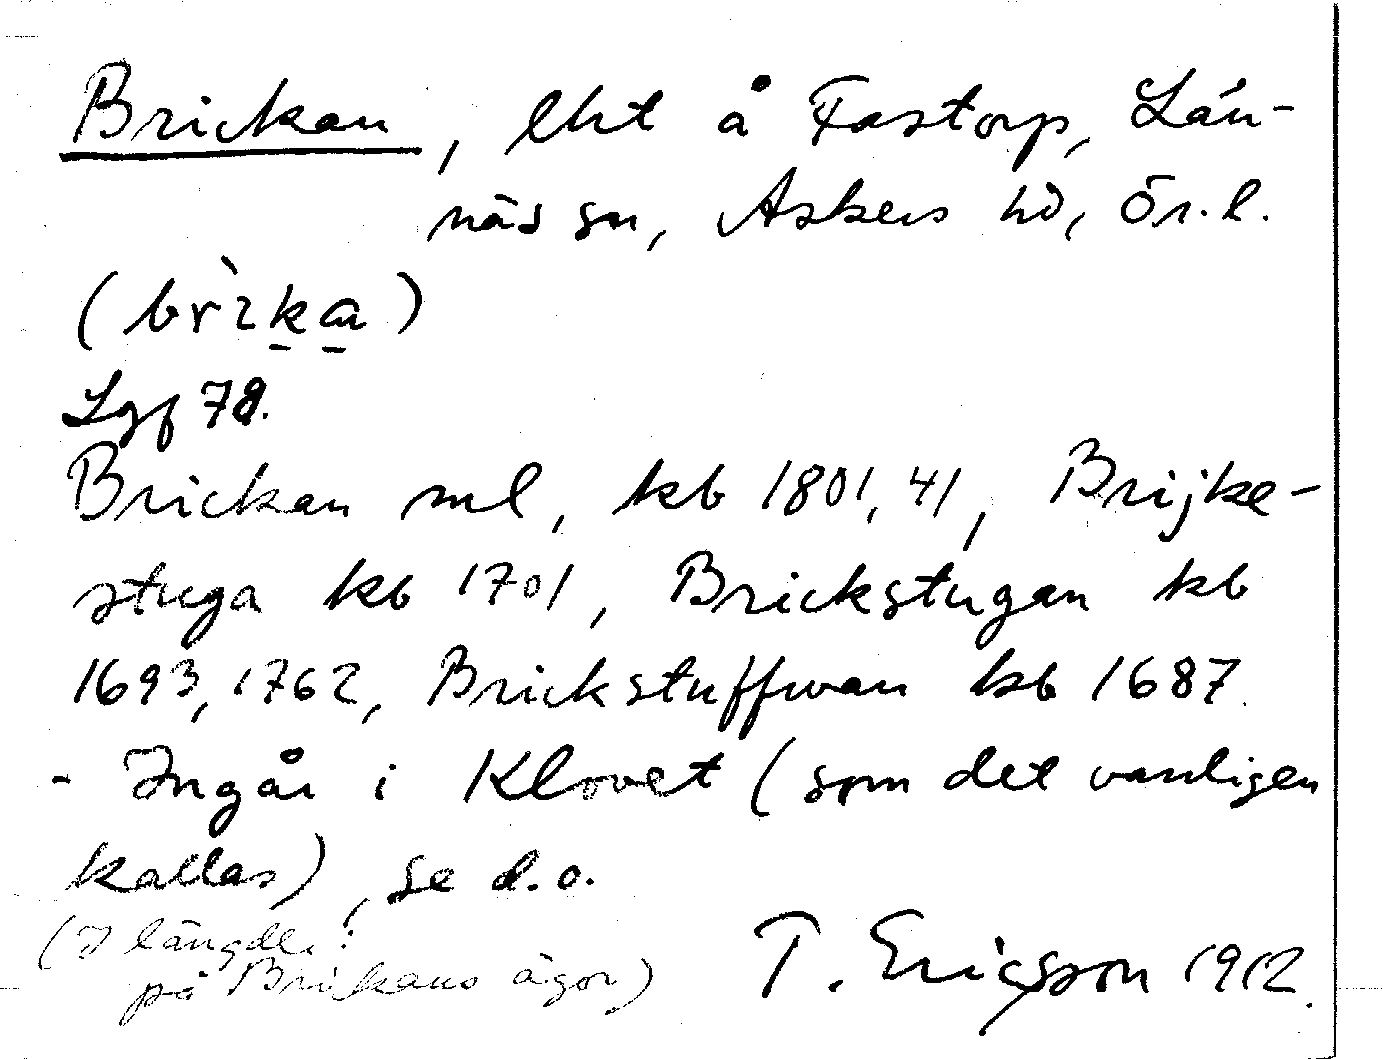 Brickan, lht å Fastorp, Län-
näs sn, Askers hd, Ör. l.
(brìka)
Lgf 78.
Brickan ml, kb 1801, 41, Brijke-
stuga kb 1701, Brickstugan kb
1693, 1762, Brickstuffwan kb 1687.
- Ingår i Klovet (som det vanligen
kallas), se d. o.
(I längde:
på Brickans ägor)
T. Ericsson 1912.